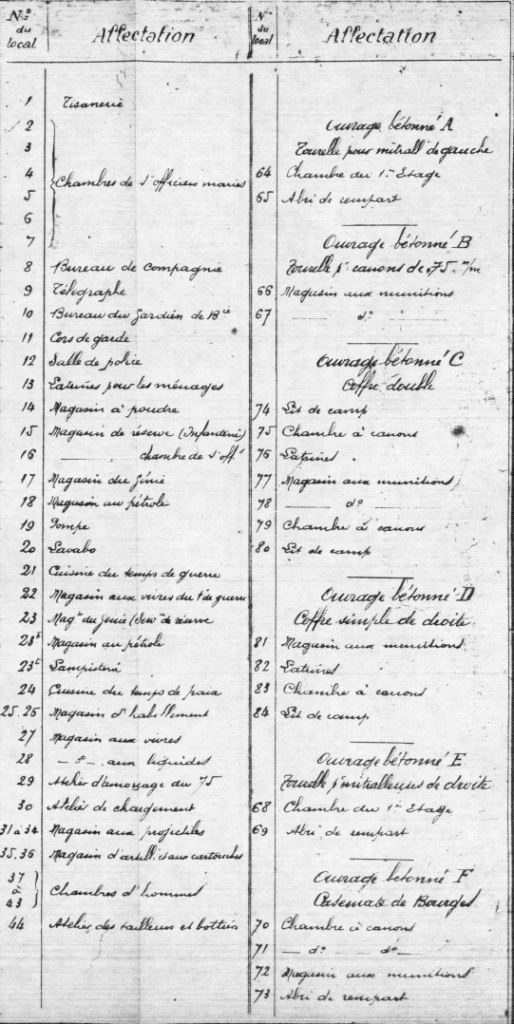 Nos du local
Affectation
1 Tisanerie
2
3
4
Chambres de s/officiers mariés
5
6
7
8 Bureau de compagnie
9 Télégraphe
10 Bureau du Gardien de Bie
11 Corps de garde
12 Salle de police
13 Latrines pour les ménages
14 Magasin à poudre
15 Magasin de réserve (Infanterie)
16 — chambre de s/offs
17 Magasin du Génie
18 Magasin au pétrole
19 Pompe
20 Lavabo
21 Cuisine du temps de guerre
22 Magasin aux vivres du t de guerre
23 Magn du Génie de réserve
23b Magasin au pétrole
23c Lampisterie
24 Cuisine du temps de paix
25.26 Magasin d'habillement
27 Magasin aux vivres
28 — d° — aux liquides
29 Atelier d'amorçage du 75
30 Atelier de chargement
31 à 34 Magasin aux projectiles
35.36 Magasin d'artill. et aux cartouches
37
à
43
Chambres d'hommes
44 Atelier des tailleurs et bottiers
N° du local
Affectation
Ouvrage bétonné A
Tourelle pour mitrall. de gauche
64 Chambre du 1er Etage
65 Abri de rempart
Ouvrage bétonné B
Tourelle pr canons de 75 m/m
66 Magasin aux munitions
67 — d° —
Ouvrage bétonné C
Coffre double
74 Lit de camp
75 Chambre à canons
76 Latrines
77 Magasin aux munitions
78 — d° —
79 Chambre à canons
80 Lit de camp
Ouvrage bétonné D
Coffre simple de droite
81 Magasin aux munitions
82 Latrines
83 Chambre à canons
84 Lit de camp
Ouvrage bétonné E
Tourelle pr mitrailleuses de droite
68 Chambre du 1er Etage
69 Abri de rempart
Ouvrage bétonné F
Casemate de Bourges
70 Chambre à canons
71 — d° — d° —
72 Magasin aux munitions
73 Abri de rempart